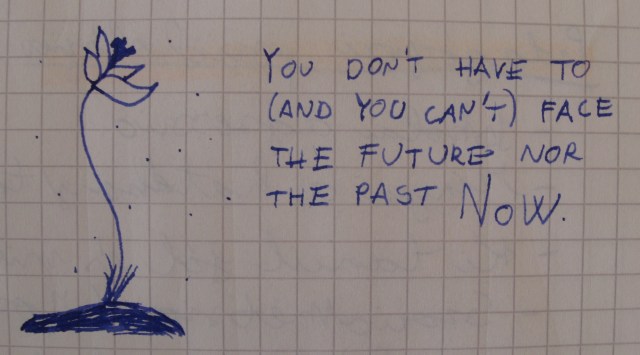 YOU DON'T HAVE TO
(AND YOU CAN'T) FACE
THE FUTURE NOR
THE PAST NOW.